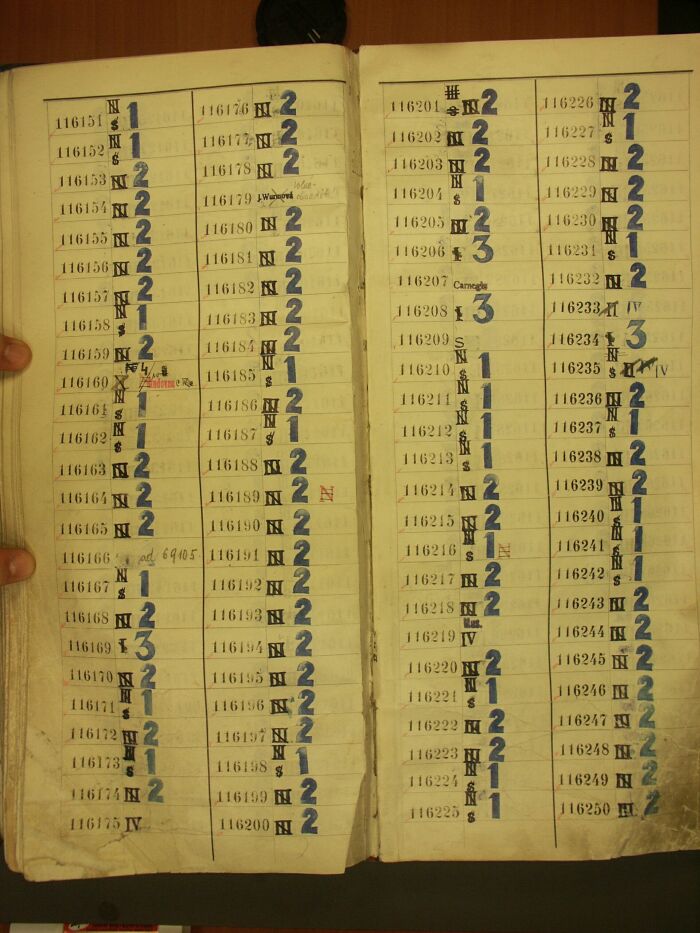 116151 N S 1
116152 N S 1
116153 NI 2
116154 NI 2
116155 NI 2
116156 NI 2
116157 NI 2
116158 N S 1
116159 NI 2
116160
116161 N S 1
116162 N S 1
116163 NI 2
116164 NI 2
116165 NI 2
116166 ad 69105.
116167 N S 1
116168 NI 2
116169 I 3
116170 NI 2
116171 N S 1
116172 NI 2
116173 N S 1
116174 NI 2
116175 IV
116176 NI 2
116177 NI 2
116178 NI 2
116179 J. Wurmová
116180 NI 2
116181 NI 2
116182 NI 2
116183 NI 2
116184 NI 2
116185 N S 1
116186 NI 2
116187 N S 1
116188 NI 2
116189 NI 2 N
116190 NI 2
116191 NI 2
116192 NI 2
116193 NI 2
116194 NI 2
116195 NI 2
116196 NI 2
116197 NI 2
116198 N S 1
116199 NI 2
116200 NI 2
116201 NI 2
116202 NI 2
116203 NI 2
116204 N S 1
116205 NI 2
116206 I 3
116207 Carnegie
116208 I 3
116209 S
116210 N S 1
116211 N S 1
116212 N S 1
116213 N S 1
116214 NI 2
116215 NI 2
116216 N S 1 N
116217 NI 2
116218 NI 2
116219 Mus. IV
116220 NI 2
116221 N S 1
116222 NI 2
116223 NI 2
116224 N S 1
116225 N S 1
116226 NI 2
116227 N S 1
116228 NI 2
116229 NI 2
116230 NI 2
116231 N S 1
116232 NI 2
116233 II IV
116234 I 3
116235 N S II IV
116236 NI 2
116237 N S 1
116238 NI 2
116239 NI 2
116240 N S 1
116241 N S 1
116242 N S 1
116243 NI 2
116244 NI 2
116245 NI 2
116246 NI 2
116247 NI 2
116248 NI 2
116249 NI 2
116250 NI 2